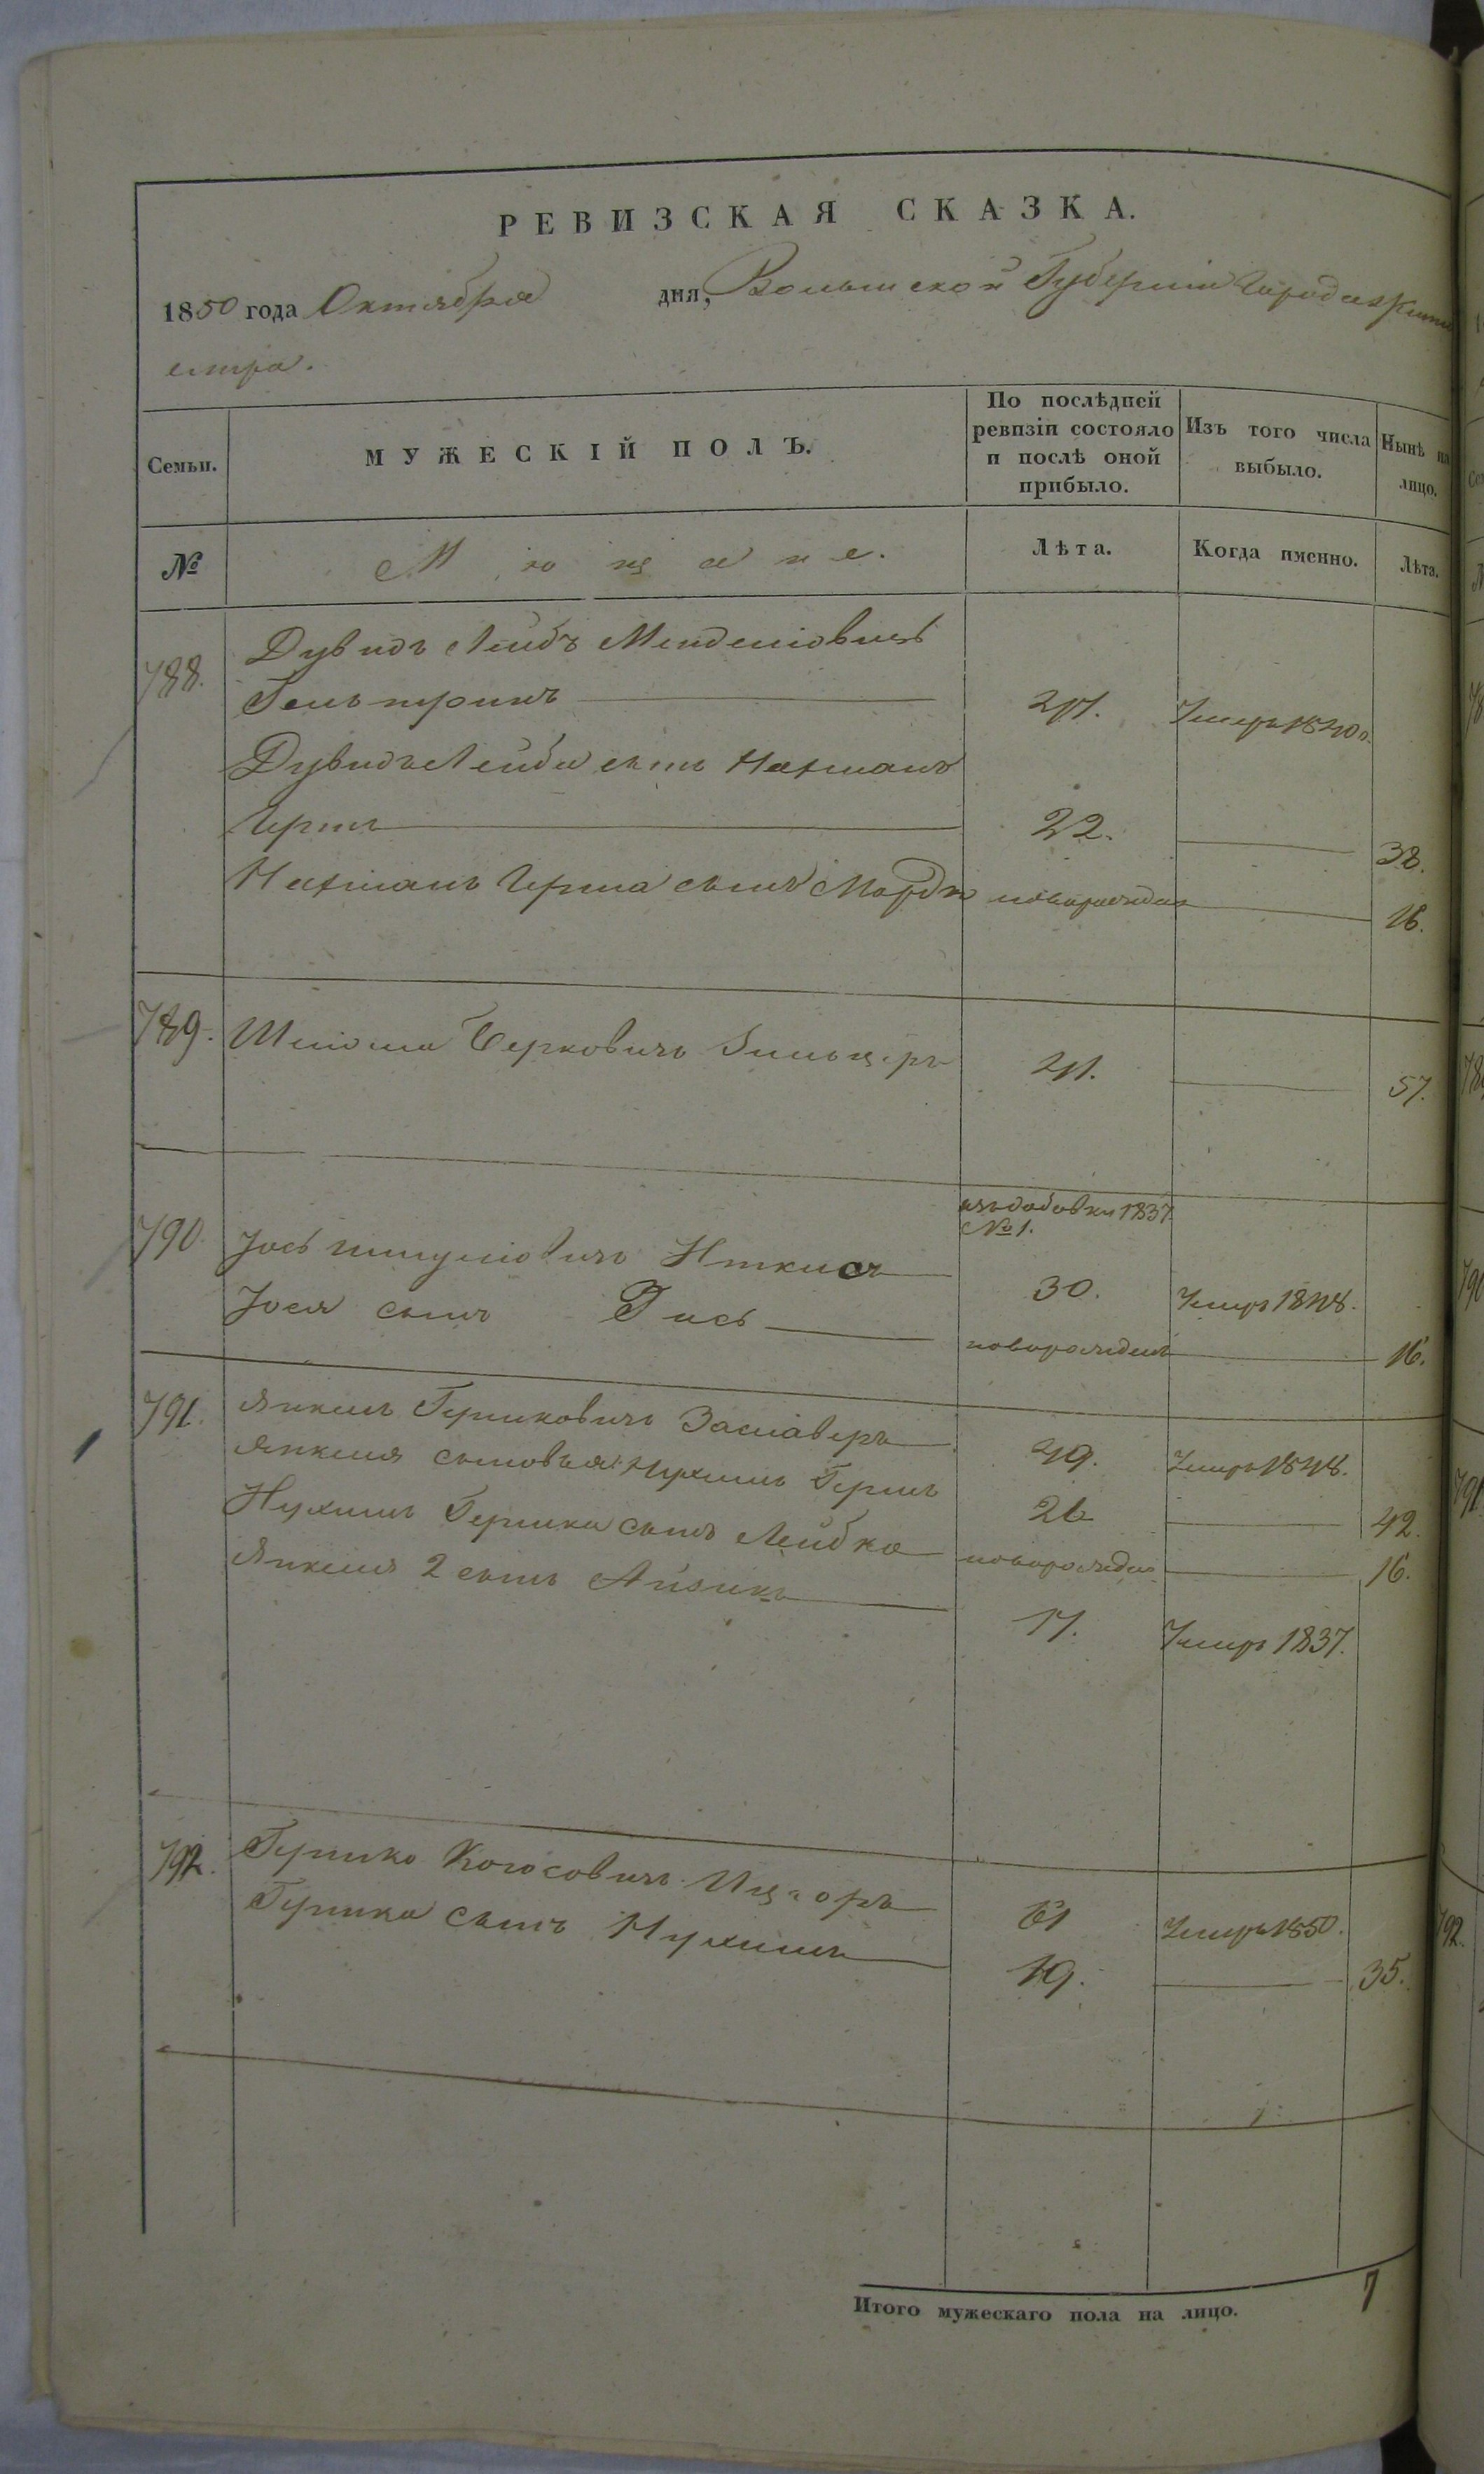 РЕВИЗСКАЯ СКАЗКА.
1850 года Октября дня, Волынской Губернии Города Жито
мира.
Семьи.
МУЖЕСКІЙ ПОЛЪ.
По послѣдней
ревизіи состояло
и послѣ оной
прибыло.
Изъ того числа
выбыло.
Нынѣ на
лицо.
№
Мѣщане.
Лѣта.
Когда именно.
Лѣта.
788.
Дувидъ Лейбъ Менделіовичь
Гельтринъ
Умеръ 1840
Дувидъ Лейба сынъ Нахманъ
Герш
22.
38.
Нахманъ Герша сынъ Мордк новорожден
16.
789.
Шліома Берковичъ
41.
57.
изъ добавки 1837
№ 1.
790
Іось Шмуліовичъ Иткисъ
30.
Умеръ 1848.
Іося сынъ Гись новорожденъ
16.
791.
Янкель Гершковичъ Заславеръ
49.
Умеръ 1848.
Янкеля сыновья: Нухимъ Герш
26
42.
Нухимъ Гершка сынъ Лейбка новорожден
16.
Янкеля 2 сынъ Айзикъ
17.
Умеръ 1837.
792.
Гершко
61
Умеръ 1850.
Гершка сынъ Нухимъ
19.
35.
Итого мужескаго пола на лицо. 7